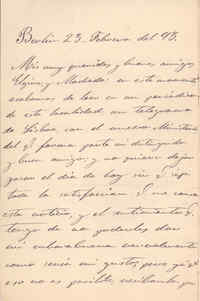 Berlin 23 Febrero del 93.
Mis muy queridos y buenos amigos
Elgina y Machado: en este momento
acabamos de leer en un periódico
de esta localidad, un telegrama
de Lisboa, con el nuevo Ministerio
del q. forma parte mi distinguido
y buen amigo, y no quiero dejar
pasar el día de hoy sin q. re
toda la satisfacción q. me causa
esta noticia, y el sentimiento q.
tengo de no poderles dar
mi enhorabuena verbalmente
como sería mi gusto; pero ya q.
eso no es posible, recibanla, por